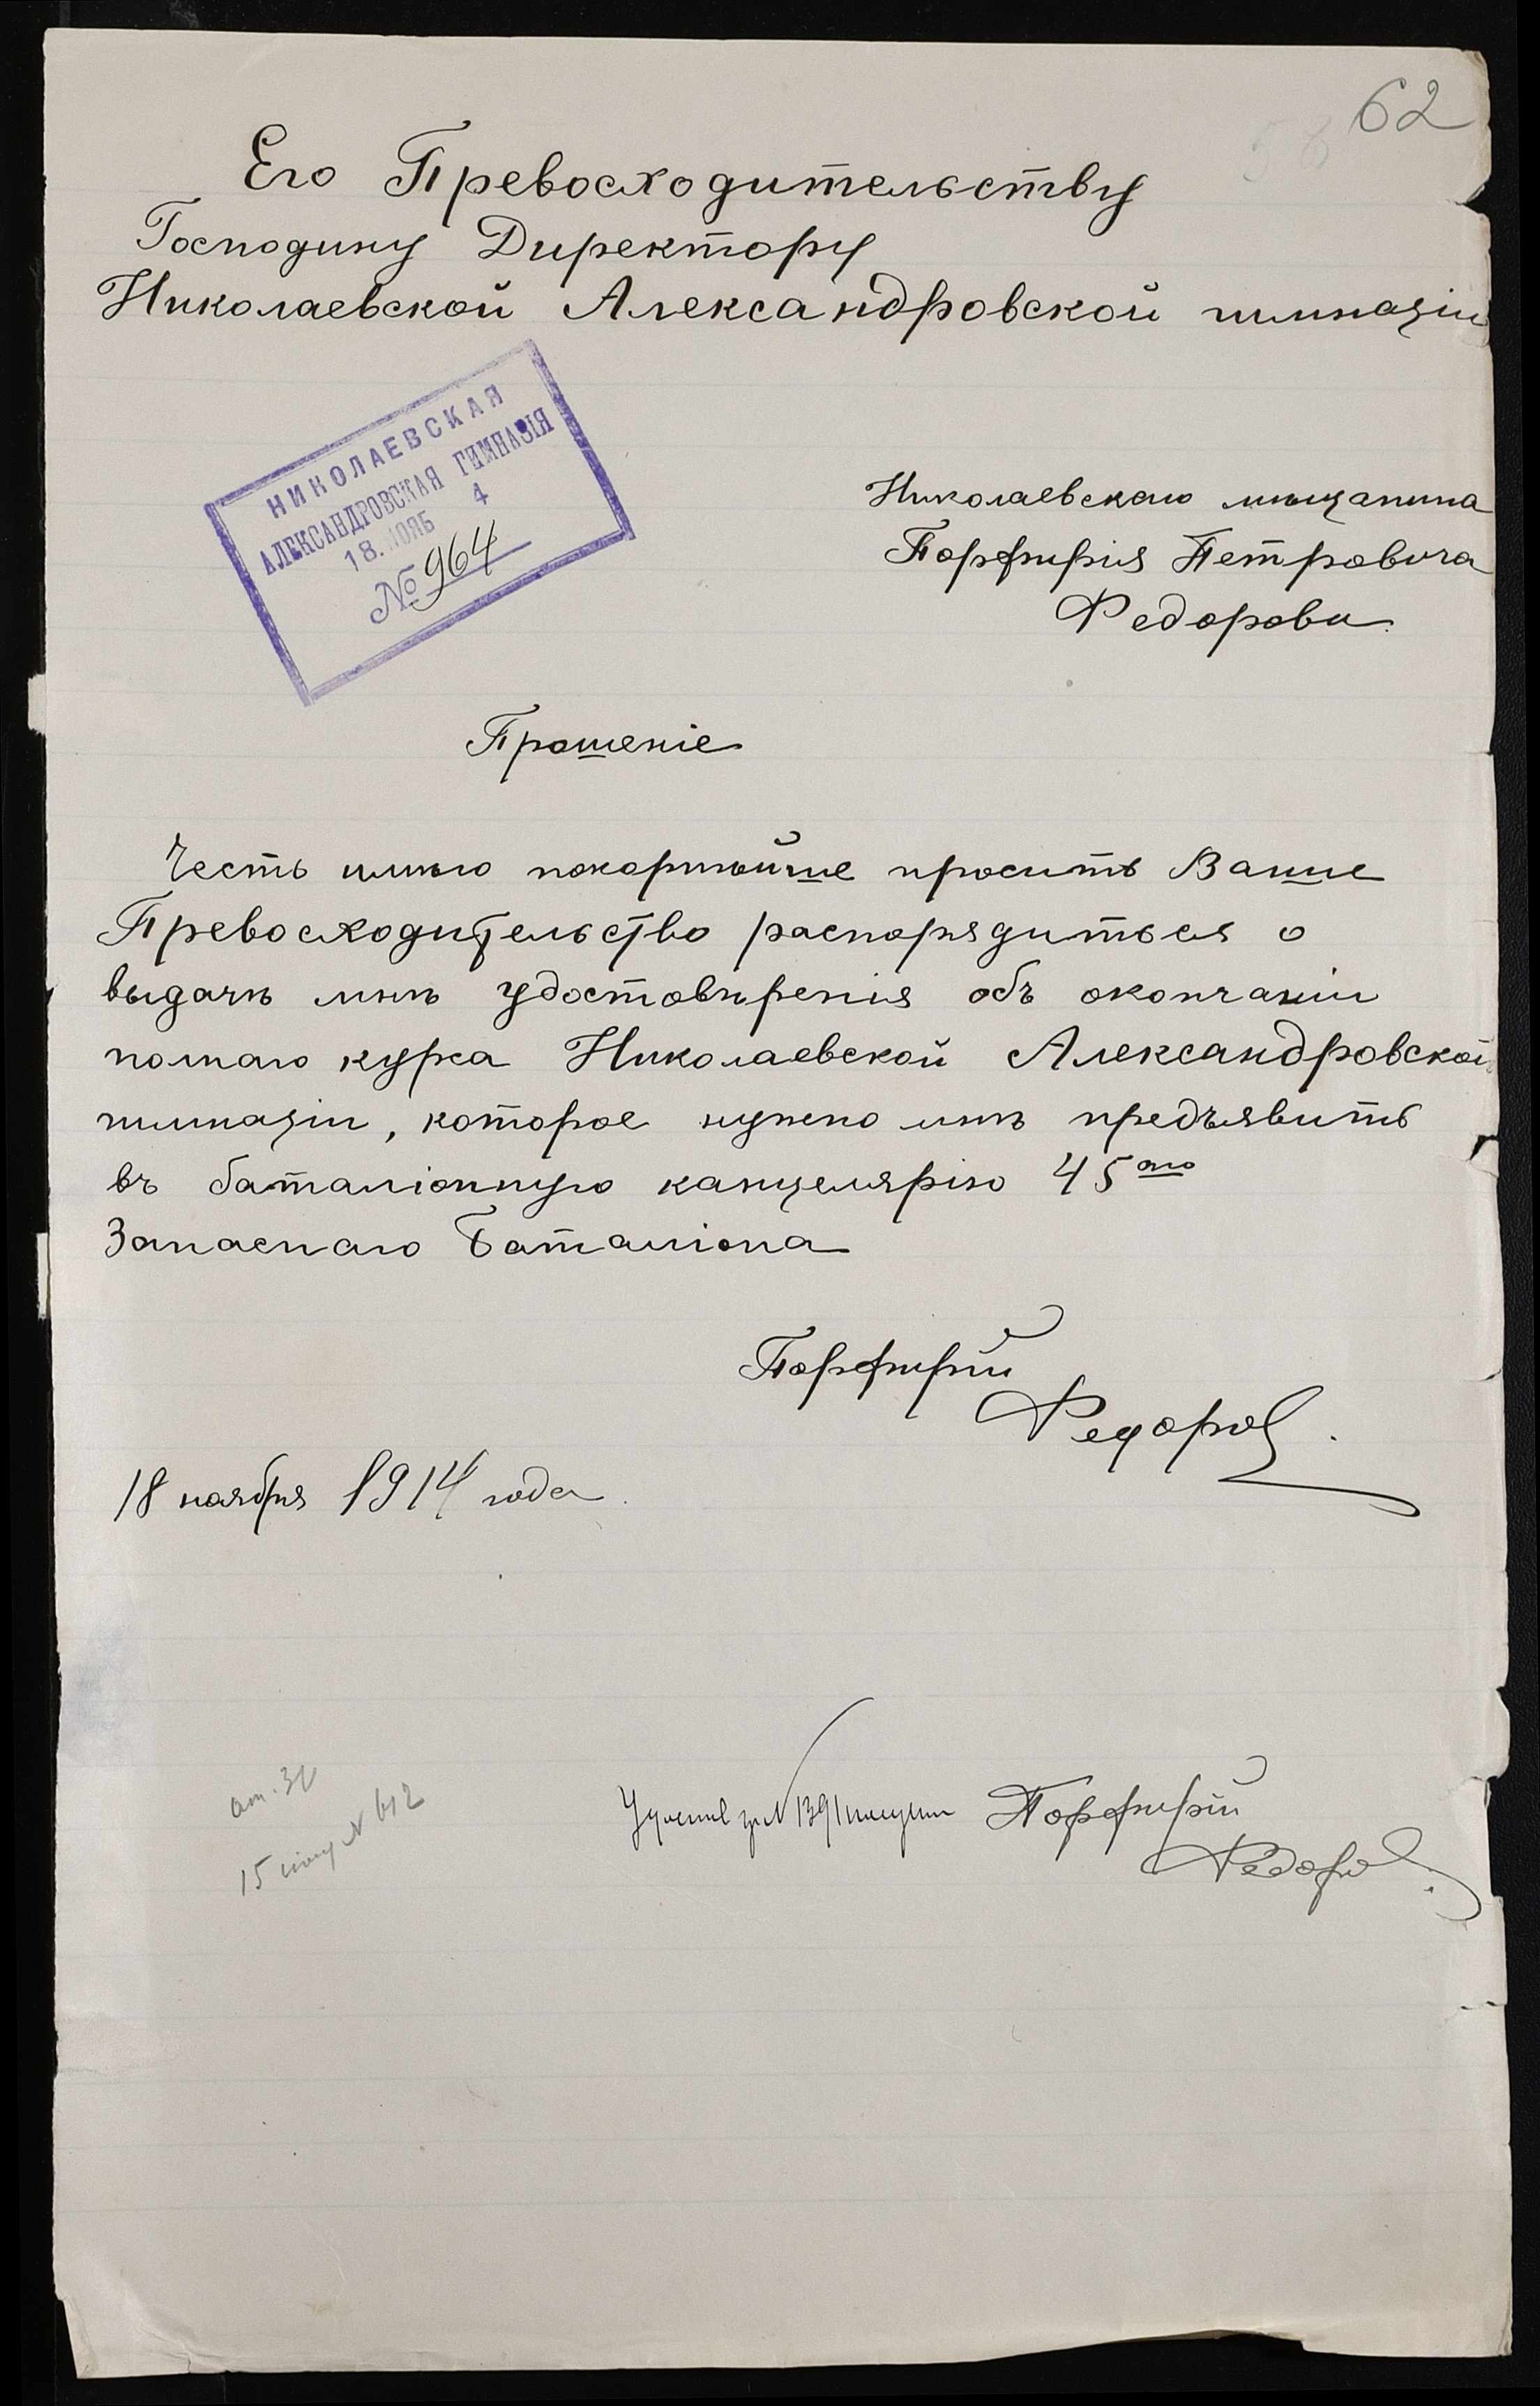 62
Его Превосходительству
Господину Директору
Николаевской Александровской гимназіи
НИКОЛАЕВСКАЯ
АЛЕКСАНДРОВСКАЯ ГИМНАЗІЯ
18. НОЯБ 4
№ 964
Николаевскаго мѣщанина
Порфирія Петровича
Федорова.
Прошеніе
Честь имѣю покорнѣйше просить Ваше
Превосходительство распорядиться о
выдачѣ мнѣ удостовѣренія объ окончаніи
полнаго курса Николаевской Александровской
гимназіи, которое нужно мнѣ предъявить
въ баталіонную канцелярію 45ого
Запаснаго Баталіона
Порфирій
Федоров.
18 ноября 1914 года.
ат. 31
15 іюн N 612
Удостов за N 1391 получил Порфирій
Федоров.